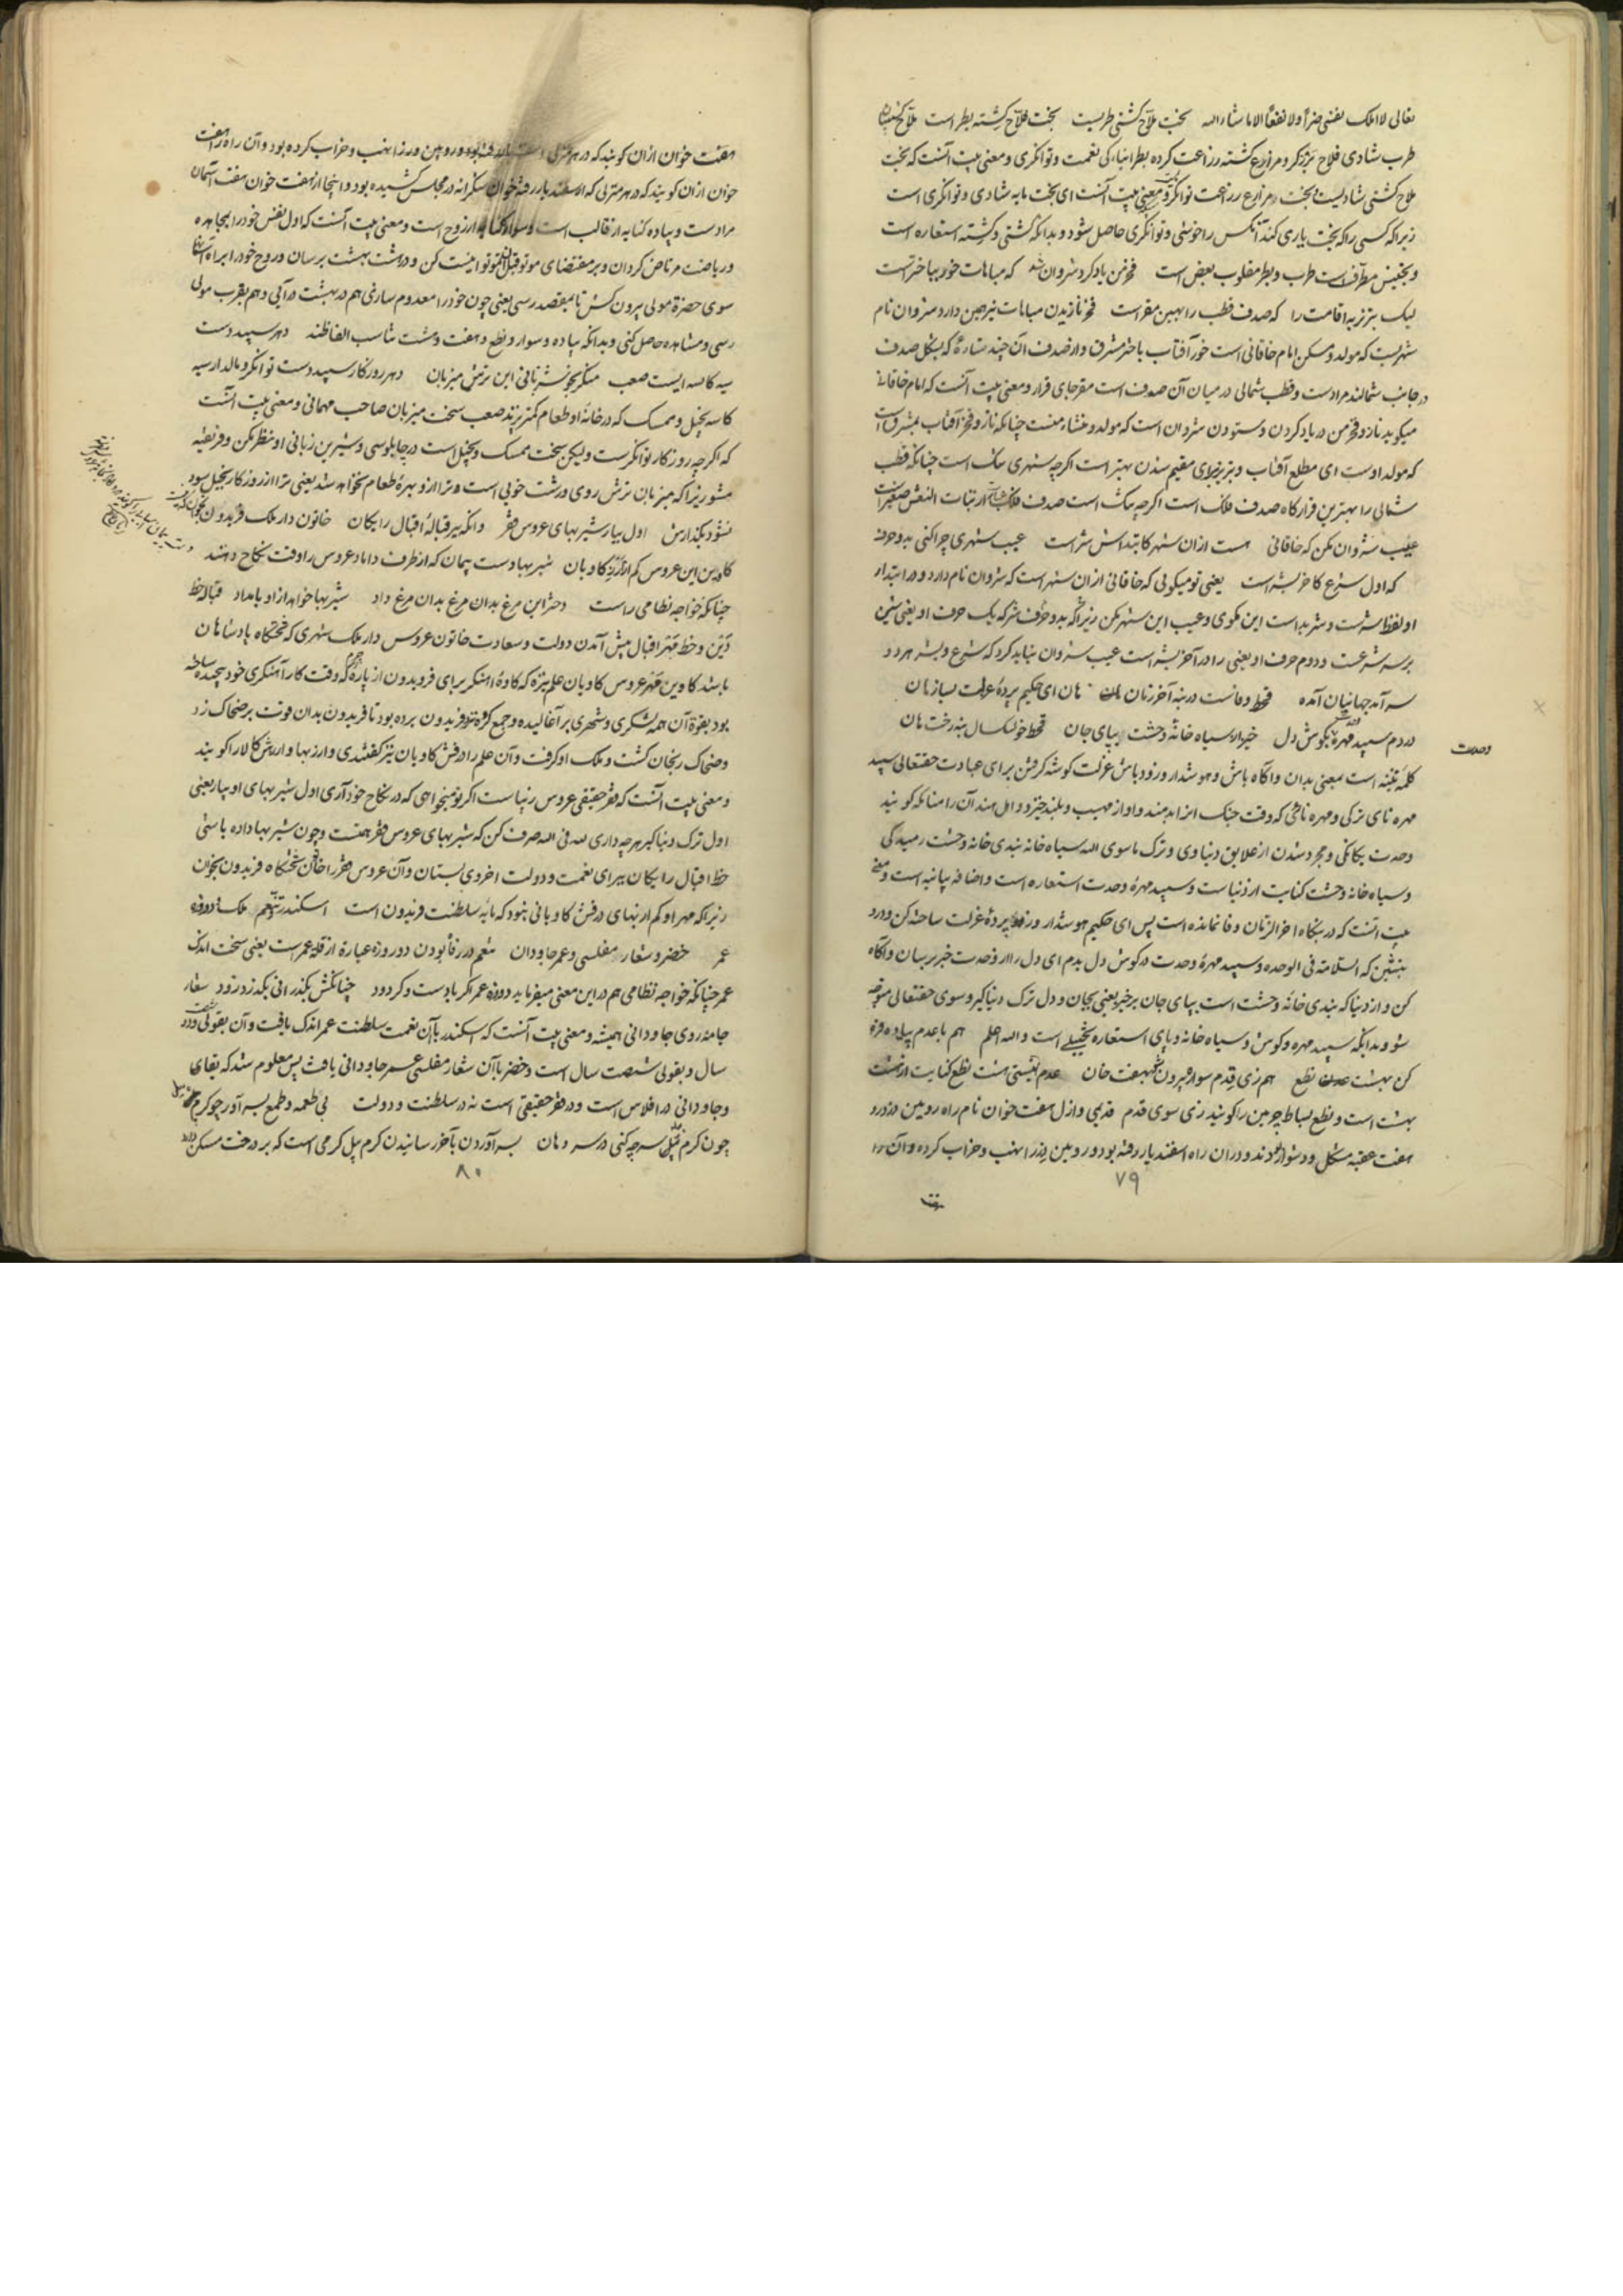 تعالی لااملک لنفسی ضرا ولا نفعا الا ماشاء الله بخت ملاح کشتی طربست بخت فلاح کشته بطر است ملاح کشتیبان
طرب شادی فلاح برزکر و مزارع کشته زراعت کرده بطر انبارکی نعمت و توانکری و معنی بیت آنست که بخت
ملاح کشتی شادیست و بخت مزارع زراعت توانکری و معنی بیت آنست ای بخت مایه شادی و توانکری است
زیرا که کسی را که بخت یاری کند آنکس را خوشی و توانکری حاصل شود و بدانکه کشتی و کشته استعاره است
و تجنیس مطرف است طرب و بطر مقلوب بعض است فخر من یاد کرد شروان به که مباهات خور بباختر است
لیک تبریز به اقامت را که صدف قطب را بهین مقر است فخر نازیدن مباهات نیز همین دارد شروان نام
شهریست که مولد و مسکن امام خاقانی است خور آفتاب باختر مشرق و از صدف آن چند ستاره که بشکل صدف
در جانب شمالند مرادست و قطب شمالی در میان آن صدف است مقر جای قرار و معنی بیت آنست که امام خاقانی
میکوید ناز و فخر من در یاد کردن و ستودن شروان است که مولد و منشاء منست چنانکه ناز و فخر آفتاب بمشرق است
که مولد اوست ای مطلع آفتاب و تبریز برای مقیم شدن بهتر است اکرچه شهری تنک است چنانکه قطب
شمالی را بهترین قرارکاه صدف فلک است اکرچه تنک است صدف فلک از بنات النعش صغیر است
عیب شروان مکن که خاقانی هست ازان شهر کابتداش شر است عیب شهری چرا کنی بدو حرف
که اول شرع و آخر بشر است یعنی تو میکویی که خاقانی ازان شهر است که شروان نام دارد و در ابتدای
او لفظ شر است و شر بد است این مکوی و عیب این شهر مکن زیرا که بدو حرف شر که یک حرف او یعنی شین
بر سر شرعست و دوم حرف او یعنی را در آخر بشر است عیب شروان نباید کرد که شرع و بشر هر دو
سرآمد جهانیان آمده قحط وفاست در بنه آخر زمان هان ای حکیم پرده عزلت بساز هان
در دم سپید مهره وحدت بکوش دل خیز از سیاه خانه وحشت بپای جان قحط خشکسال بنه رخت هان
کلمه تنبیه است بمعنی بدان و آکاه باش و هوشدار و زود باش عزلت کوشه کرفتن برای عبادت حقتعالی سپید
مهره نای ترکی و مهره نای که وقت جنک انرا دمند و آواز مهیب و بلند خیزد و اهل هند آن را سنکه کویند
وحدت یکانکی و مجرد شدن از علایق دنیاوی و ترک ماسوی الله سیاه خانه بندی خانه وحشت رمیدکی
و سیاه خانه وحشت کنایت از دنیاست و سپید مهره وحدت استعاره است و اضافه بیانیه است و معنی
بیت آنست که در بنکاه آخر الزمان وفا نمانده است پس ای حکیم هوشدار و زود پرده عزلت ساخته کن و درو
بنشین که السلامة فی الوحدة و سپید مهره وحدت در کوش دل بدم ای دل را از وحدت خبر برسان و آکاه
کن و از دنیا که بندی خانه وحشت است بپای جان برخیز یعنی بجان و دل ترک دنیا کیر و سوی حقتعالی متوجه
شو و بدانکه سپید مهره و کوش و سیاه خانه و پای استعاره تخییلی است والله اعلم هم با عدم پیاده فرو
کن بهشت نطع هم زی قدم سوار برون شو بهفت خان عدم نیستی هشت نطع کنایت از هشت
بهشت است و نطع بساط چرمین را کویند زی سوی قدم قدیمی و ازل هفت خوان نام راه رویین دز درو
هفت عقبه مشکل و دشوار بودند و دران راه اسفندیار رفته بود و رویین دز را نهب و خراب کرده و آن را
وحدت
۷۹
هفت
هفت خوان ازان کویند که در هر منزلی اسفندیار رفته بود و رویین دز را نهب و خراب کرده بود و آن راه را هفت
خوان ازان کویند که در هر منزلی که اسفندیار رفته خوان شکرانه در مجلس کشیده بود و اینجا از هفت خوان هفت آسمان
مرادست و پیاده کنایه از قالب است و سوار کنایه از روح است و معنی بیت آنست که اول نفس خود را بمجاهده
و ریاضت مرتاض کردان و بر مقتضای موتوا قبل ان تموتوا نیست کن و در هشت بهشت برسان و روح خود را براه
سوی حضرة مولی بیرون کش تا بمقصد رسی یعنی چون خود را معدوم سازی هم در بهشت درآیی و هم بقرب مولی
رسی و مشاهده حاصل کنی و بدانکه پیاده و سوار و نطع و هفت و هشت تناسب الفاظند دهر سپید دست
سیه کاسه ایست صعب منکر بخوش زبانی این ترش میزبان دهر روزکار سپید دست توانکر و مالدار سیه
کاسه بخیل و ممسک که در خانه او طعام کمتر پزند صعب سخت میزبان صاحب مهمانی و معنی بیت آنست
که اکرچه روزکار توانکرست ولیکن سخت ممسک و بخیل است در چاپلوسی و شیرین زبانی او نظر مکن و فریفته
مشو زیرا که میزبان ترش روی و زشت خویی است و ترا ازو بهره طعام نخواهد شد یعنی ترا از روزکار بخیل سود
نشود بکذارش اول بیار شیربهای عروس فقر وانکه ببر قباله اقبال رایکان خاتون دار ملک فریدون
کابین این عروس کم از کاویان شیربها دست پیمان که از طرف داماد عروس را وقت نکاح دهند
چنانکه خواجه نظامی راست دختر این مرغ بدان مرغ داد شیربها خواهد ازو بامداد قباله خط
دین و خط مهر اقبال پیش آمدن دولت و سعادت خاتون عروس دار ملک شهری که تختکاه پادشاهان
باشد کاوین مهر عروس کاویان علم نیزه که کاوه آهنکر برای فریدون از پاره چرم که وقت کار آهنکری خود پیچیده ساخته
بود بقوة آن همه لشکری و شهری بر آغالیده و جمع کرده نزد فریدون برده بود تا فریدون بدان قوت بر ضحاک زد
و ضحاک ریحان کشت و ملک او کرفت و آن علم را درفش کاویان نیز کفتندی و ارز بها و ارزش کالا را کویند
و معنی بیت آنست که فقر حقیقی عروس زیباست اکر تو میخواهی که در نکاح خود آری اول شیربهای او بیار یعنی
اول ترک دنیا کیر هرچه داری لله فی الله صرف کن که شیربهای عروس فقر همینست و چون شیربها داده باشی
خط اقبال رایکان ببر ای نعمت و دولت اخروی بستان و آن عروس فقر را خاتون تختکاه فریدون بخوان
زیرا که مهر او کم از بهای درفش کاویانی نبود که مایه سلطنت فریدون است اسکندر و تنعم ملک دو روزه
عمر خضر و شعار مفلسی و عمر جاودان تنعم در رفاه بودن دو روزه عبارة از قلة عمرست یعنی سخت اندک
عمر چنانکه خواجه نظامی هم در این معنی میفرماید دو روزه عمر اکر بادست و کر دود چنانکش بکذرانی بکذرد زود شعار
جامه روی جاودانی همیشه و معنی بیت آنست که اسکندر با آن نعمت سلطنت عمر اندک یافت و آن بقولی
سال و بقولی شصت سال است و خضر با آن شعار مفلسی عمر جاودانی یافت پس معلوم شد که بقای
و جاودانی در افلاس است و در فقر حقیقی است نه در سلطنت و دولت بی طعمه و طمع بسر آور چو کرم
چون کرم پیل سرچه کنی در سر دهان بسر آوردن بآخر رسانیدن کرم پیل کرمی است که بر درخت مسکن دارد
۸۰